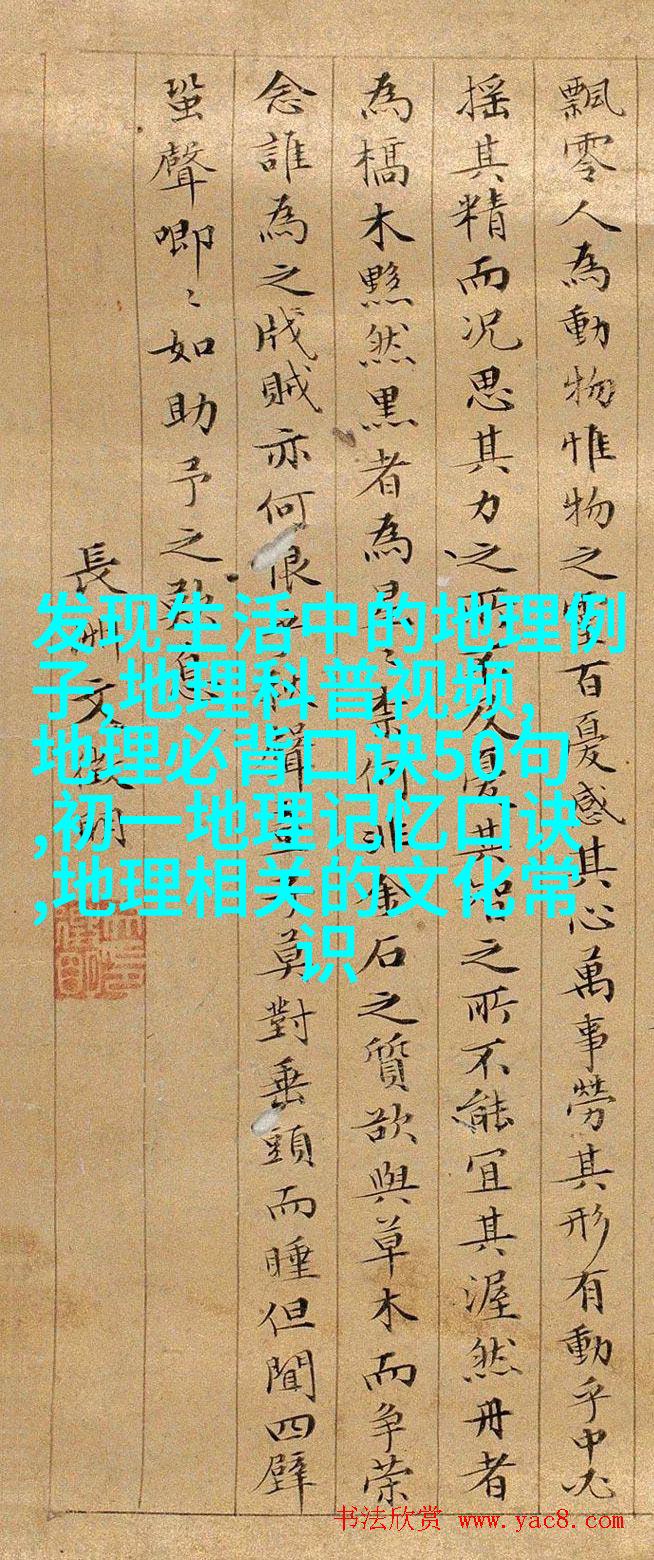 飄零人為動物惟物之靈百憂感其心萬事勞其形有動乎中必
搖其精而況思其力之所不及憂其智之所不能宜其渥然丹者
為槁木黟然黑者為星〻柰何非金石之質欲與草木而爭榮
念誰為之戕賊亦何恨乎秋聲童子莫對垂頭而睡但聞四壁
蛩聲唧〻如助予之歎息
長洲文徵明
发现生活中的地理例
子,地理科普视频,
地理必背口诀50句
,初一地理记忆口诀
,地理相关的文化常
识
书法欣赏 www.yac8.com